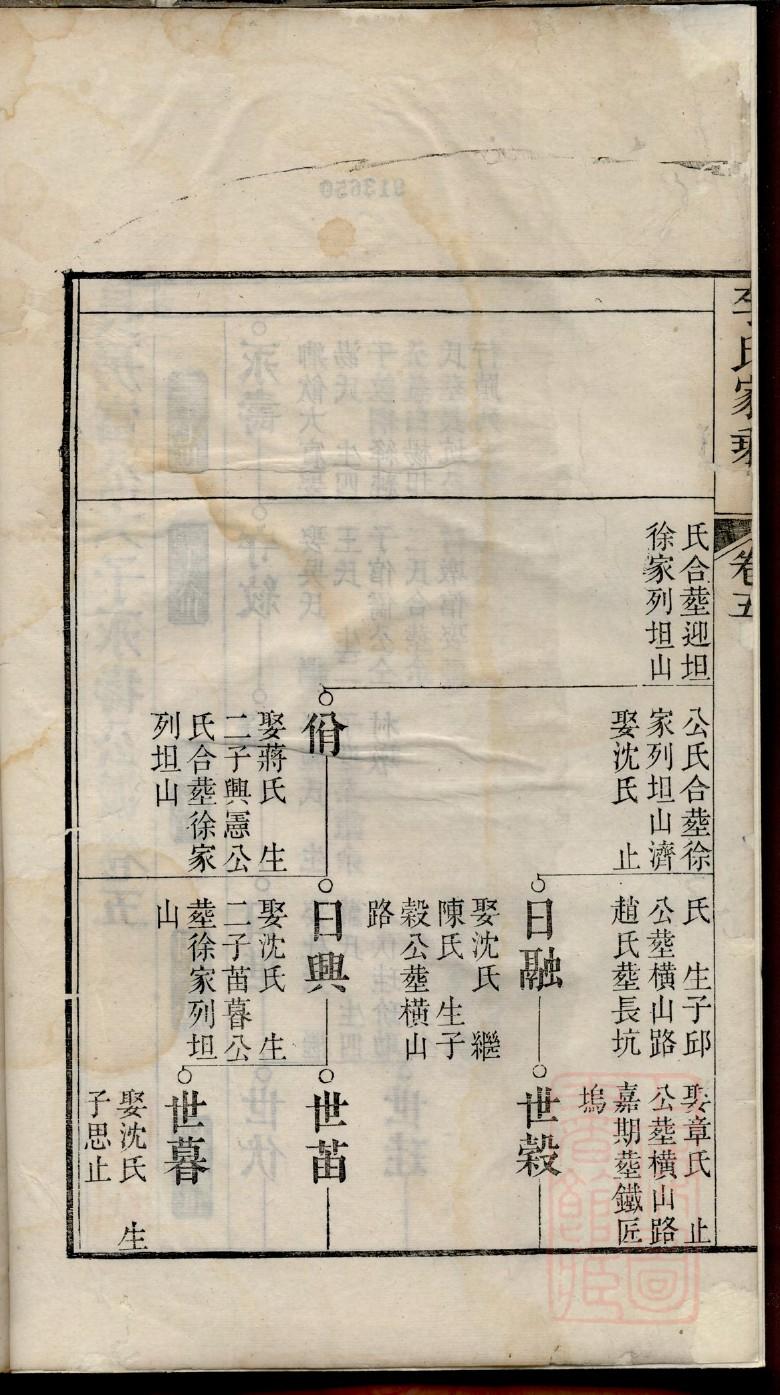 李氏家乘
卷五
氏合塟迎坦
徐家列坦山
公氏合塟徐
家列坦山濟
娶沈氏　止
佾
娶蔣氏　生
二子興憲公
氏合塟徐家
列坦山
氏　生子邱
公塟橫山路
趙氏塟長坑
日融
娶沈氏　繼
陳氏　生子
穀公塟橫山
路
日興
娶沈氏　生
二子苗暮公
塟徐家列坦
山
娶章氏　止
公塟橫山路
嘉期塟鐵匠
塢
世穀
世苗
世暮
娶沈氏　生
子思止